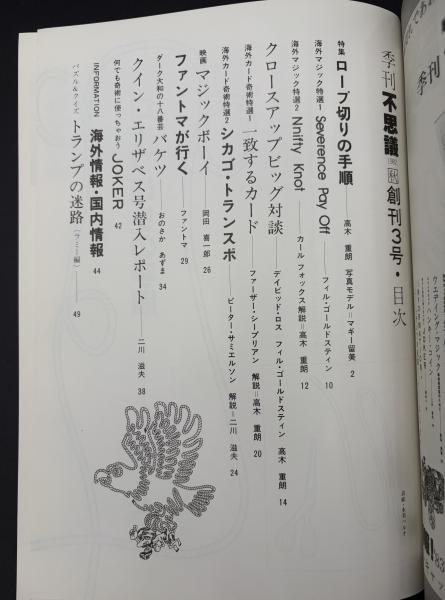 季刊 不思議 創刊3号・目次
特集 ロープ切りの手順——高木 重朗 写真モデル=マギー留美 2
海外マジック特選1 Severence Pay Off——フィル・ゴールドスティン 10
海外マジック特選2 Nnifty Knot——カール フォックス 解説=高木 重朗 12
クロースアップビッグ対談——デイビッド・ロス フィル・ゴールドスティン 高木 重朗 14
海外カード奇術特選1 一致するカード——ファーザー・シープリアン 解説=高木 重朗 20
海外カード奇術特選2 シカゴ・トランスポ——ピーター・サミエルソン 解説=二川 滋夫 24
映画 マジックボーイ——岡田 喜一郎 26
ファントマが行く——ファントマ 29
ダーク大和の十八番芸 バケツ——おのさか あずま 34
クイン・エリザベス号潜入レポート——二川 滋夫 38
何でも奇術に使っちゃおう JOKER 42
INFORMATION 海外情報・国内情報 44
パズル&クイズ トランプの迷路(ラミー編)——49
季刊